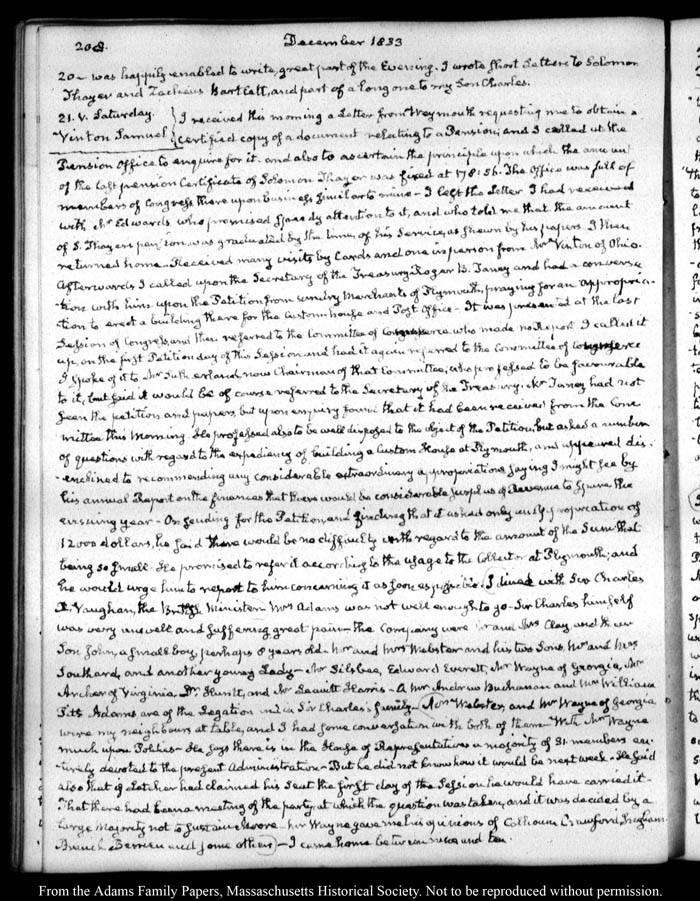 208.
December 1833
20 – was happily enabled to write, great part of the Evening. I wrote short Letters to Solomon
Thayer and Zacheus Bartlett, and part of a long one to my Son Charles.
21. V. Saturday.
Vinton Samuel
I received this morning a Letter from Weymouth requesting me to obtain a
certified copy of a document relating to a Pension; and I called at the
Pension Office to enquire for it. and also to ascertain the principle upon which the amount
of the last pension Certificate of Solomon Thayer was fixed at 178:56. The Office was full of
members of Congress there upon business similar to mine – I left the Letter I had received
with Mr Edwards who promised speedy attention to it, and who told me that the amount
of S. Thayer's pension, was graduated by the time, of his Service, as shewn by his papers. I then
returned home – Received many visits by Cards and one in person from Mr Vinton of Ohio.
Afterwards I called upon the Secretary of the Treasury Roger B. Taney and had a conversa
tion with him upon the Petition from sundry Merchants of Plymouth, praying for an appropria
tion to erect a building there for the Custom house and Post Office – It was presented at the last
Session of Congress, and then referred to the Committee of Commerce, who made no Report I called it
up, on the first Petition day of this Session, and had it again referred to the Committee of Commerce
I spoke of it to Mr Sutherland now Chairman of that Committee, who professed to be favourable
to it, but said it would be of course referred to the Secretary of the Treasury. Mr Taney had not
seen the petition and papers, but upon enquiry found that it had been received from the Com
mittee this Morning. He professed also to be well disposed to the object of the Petition, but asked a number
of questions with regard to the expediency of building a Custom House at Plymouth, and appeared dis
inclined to recommending any considerable extraordinary appropriations saying I might see by
his annual Report on the finances that there would be no considerable surplus of Revenue to spare the
ensuing year – On sending for the Petition, and finding that it asked only an appropriation of
12000 dollars, he said there would be no difficulty with regard to the amount of the Sum that
being so small. He promised to refer it according to the usage to the Collector at Plymouth; and
he would urge him to report to him concerning it as soon as possible. I dined with Sir Charles
R. Vaughan, the British Minister. Mrs Adams was not well enough to go – Sir Charles himself
was very unwell and suffering great pain – The Company were Mr and Mrs Clay and their
Son John, a small boy, perhaps 8 years old. Mr and Mrs Webster and his two Sons, Mr and Mrs
Southard, and another young Lady – Mr Silsbee, Edward Everett, Mr Wayne of Georgia, Mr
Archer of Virginia, Dr Hunt, and Mr Leavitt Harris – A Mr Andrew Buchanan and Mr William
Pitt Adams are of the Legation and in Sir Charles's family – Mrs Webster, and Mr Wayne of Georgia
were my neighbours at table, and I had some conversation with both of them – With Mr Wayne
much upon Politics – He says there is in the House of Representatives a majority of 31 members en
tirely devoted to the present Administration – But he did not know how it would be next week – He said
also that if Letcher had claimed his Seat the first day of the Session he would have carried it –
That there had been a meeting of the party at which the question was taken, and it was decided by a
large Majority not to sustain Moore – Mr Wayne gave me his opinions of Calhoun, Crawford, Ingham
Branch Berrien and some others – I came home between nine and ten
From the Adams Family Papers, Massachusetts Historical Society. Not to be reproduced without permission.